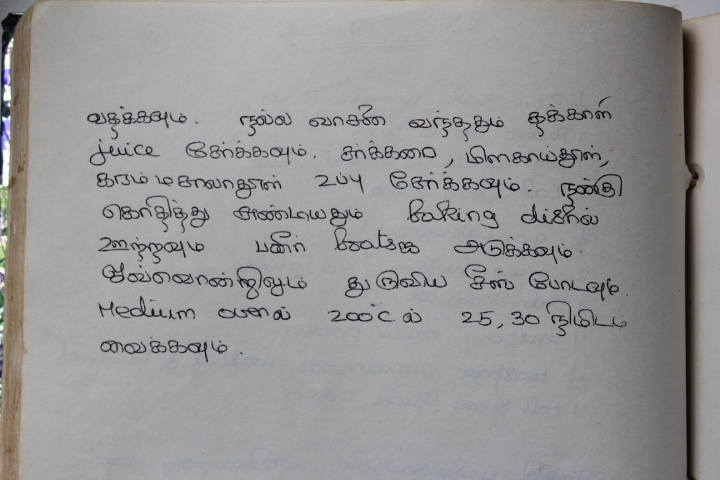 வதக்கவும். நல்ல வாசனை வந்ததும் தக்காளி
juice சேர்க்கவும். சர்க்கரை, மிளகாய்தூள்,
கரம் மசாலாதூள் உப்பு சேர்க்கவும். நன்கு
கொதித்து சுண்டியதும் baking dishல்
ஊற்றவும் பனீர் boatsஐ அடுக்கவும்.
ஒவ்வொன்றிலும் துருவிய சீஸ் போடவும்.
Medium ovenல் 200°C ல் 25, 30 நிமிடம்
வைக்கவும்.